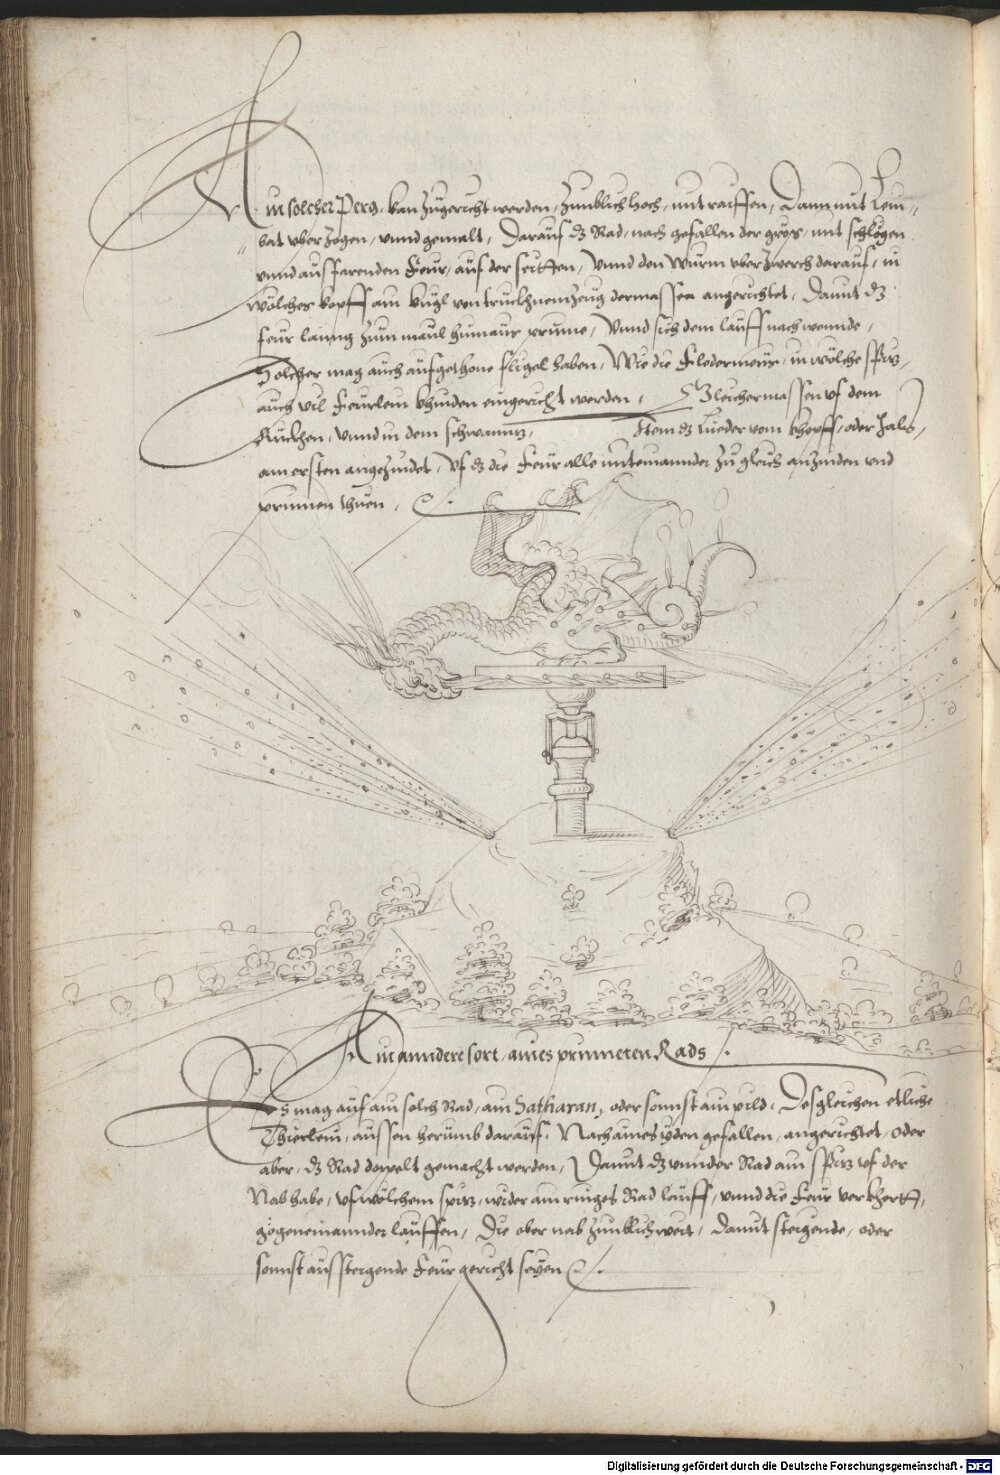 Ain solcher Perg, kan zugericht werden, zimblich hoch, mit raiffen, Dann mit Lein=
=bat vberzogen, vnnd gemalt, Darauf dz Rad, nach gefallen der gros, mit schlegen
vnnd ausfarenden Feur, auf der seitten, Vnnd den Wurm vberzwerch darauf, in
wölches kopff ain kugl von truckhnem Zeug dermassen angerichtet, Damit dz
feur lanng zum maul hinaus prinne, Vnnd sich dem lauff nach wennde,
Solcher mag auch aufgethone flügel haben, Wie die Fledermeus, in wölche spiz,
auch vil Feurlein khinden eingericht werden, Gleichermassen vf dem
Ruckhen, vnnd in dem schwannz, Item dz Lueder vom khopff, oder hals,
am ersten angezindet, Vf dz die Feur alle miteinannder zugleich anzinden vnd
prinnen thuen,
Ain anndere sort, aines prinneten Rads
Es mag auf ain solch Rad, ain Satharan, oder sonnst ain pild, Desgleichen etliche
Thierlein, aussen herumb darauf, Nach aines yden gefallen, angerichtet, oder
aber, dz Rad doppelt gemacht werden, Damit dz vnnder Rad ain spiz vf der
Nab habe, vf wölchem spiz, wider ain ringes Rad lauff, vnnd die Feur verkhertt,
gögeneinannder lauffen, Die ober nab zimblich weit, Damit steigende, oder
sonnst aussteigende Feur gericht seyen
Digitalisierung gefördert durch die Deutsche Forschungsgemeinschaft - DFG